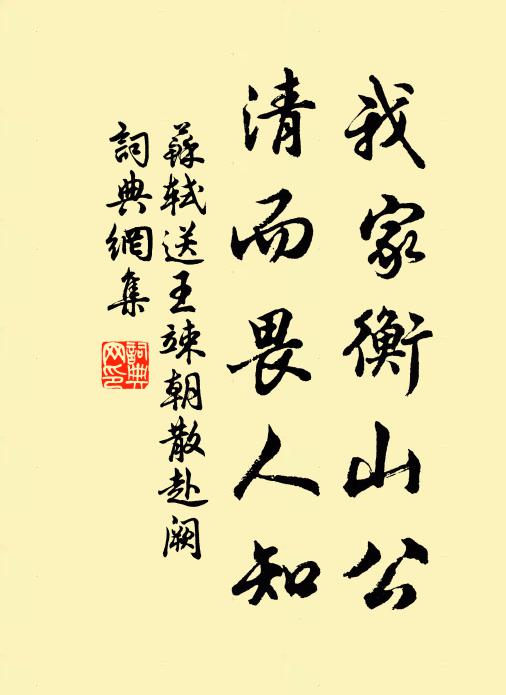 我家衡山公
清而畏人知
蘇軾送王竦朝散赴阙
詞典網集
詞典网印